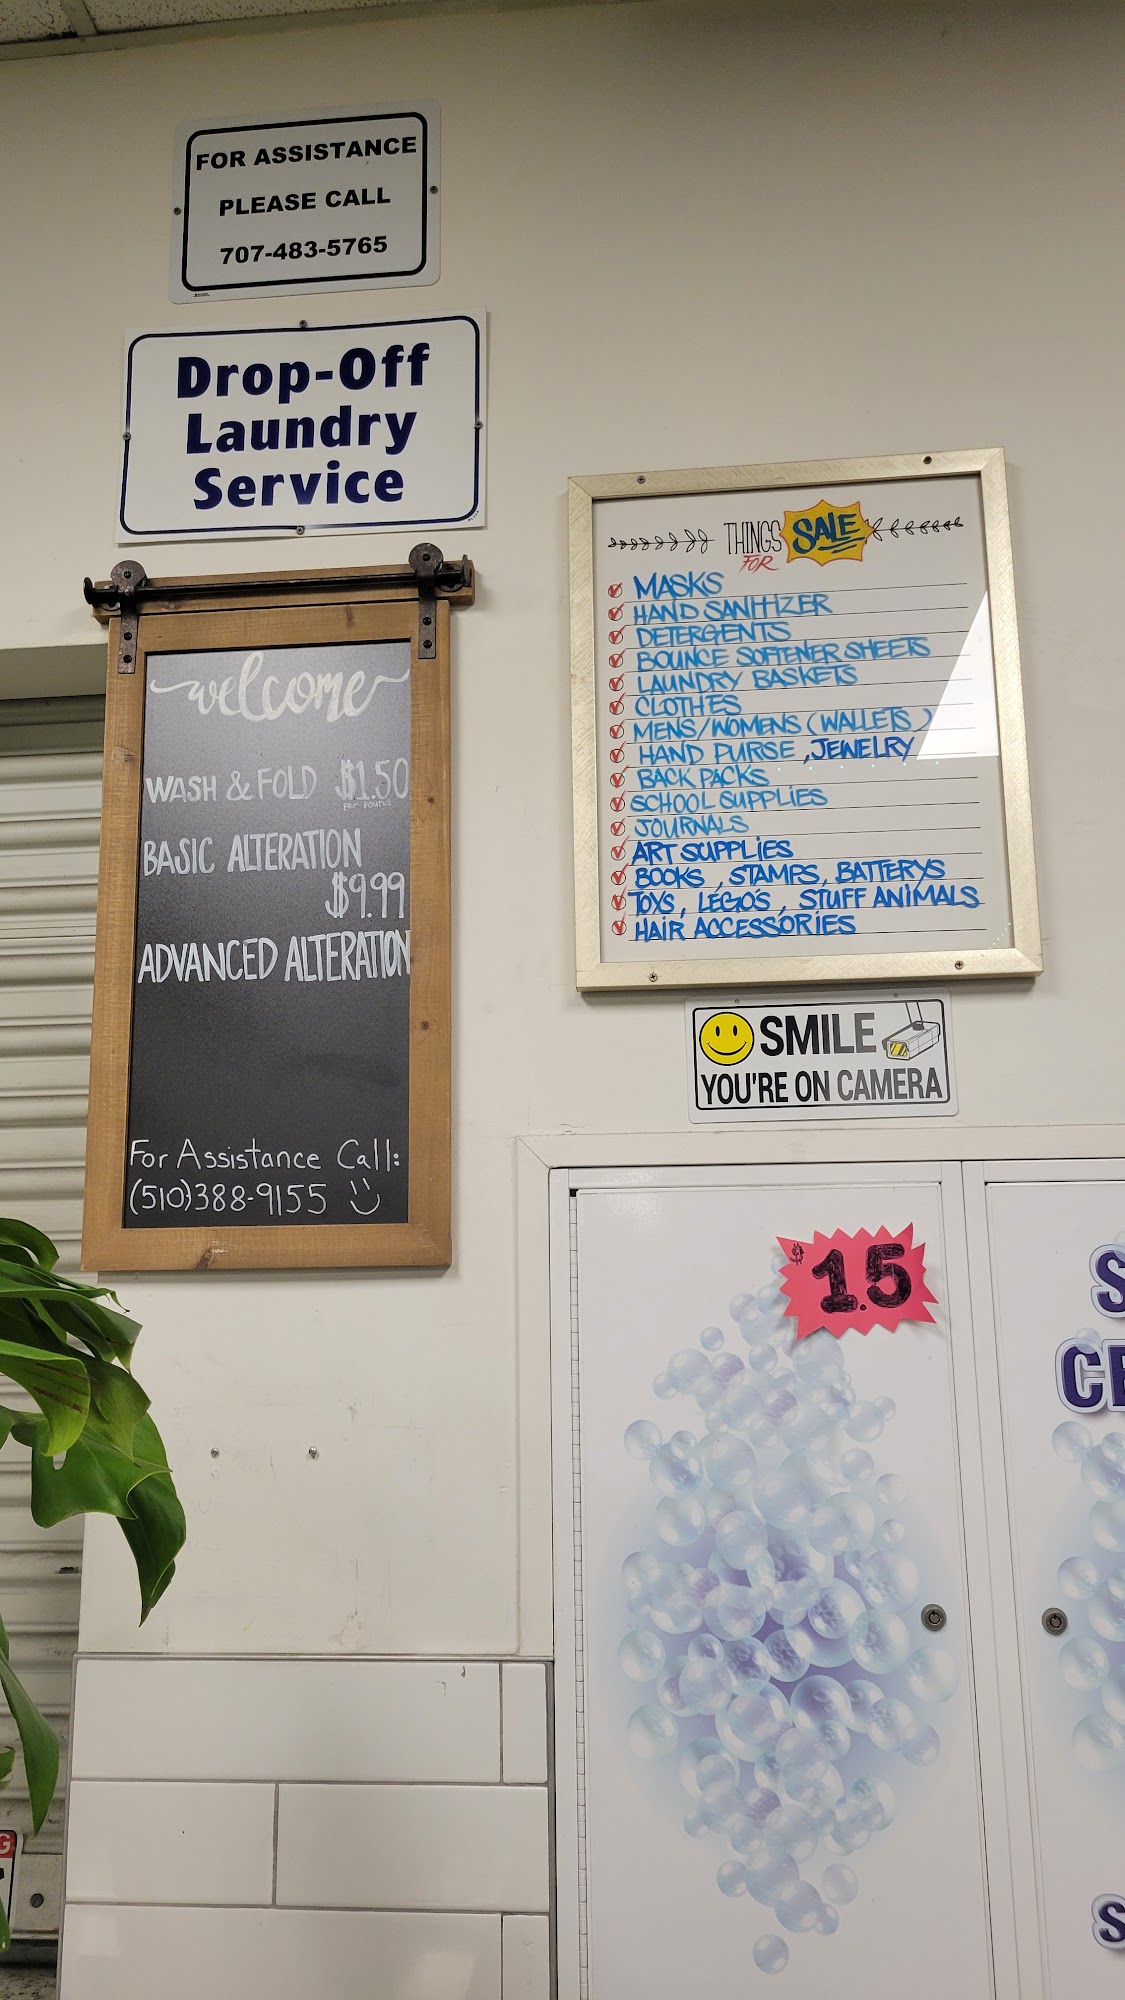 FOR ASSISTANCE
PLEASE CALL
707-483-5765
Drop-Off
Laundry
Service
welcome
WASH & FOLD $1.50
per pound
BASIC ALTERATION
$9.99
ADVANCED ALTERATION
For Assistance Call:
(510)388-9155
THINGS SALE
FOR
MASKS
HAND SANITIZER
DETERGENTS
BOUNCE SOFTENER SHEETS
LAUNDRY BASKETS
CLOTHES
MENS/WOMENS (WALLETS )
HAND PURSE ,JEWELRY
BACK PACKS
SCHOOL SUPPLIES
JOURNALS
ART SUPPLIES
BOOKS , STAMPS, BATTERYS
TOYS, LEGO'S , STUFF ANIMALS
HAIR ACCESSORIES
SMILE
YOU'RE ON CAMERA
$1.5
S
CE
S
G